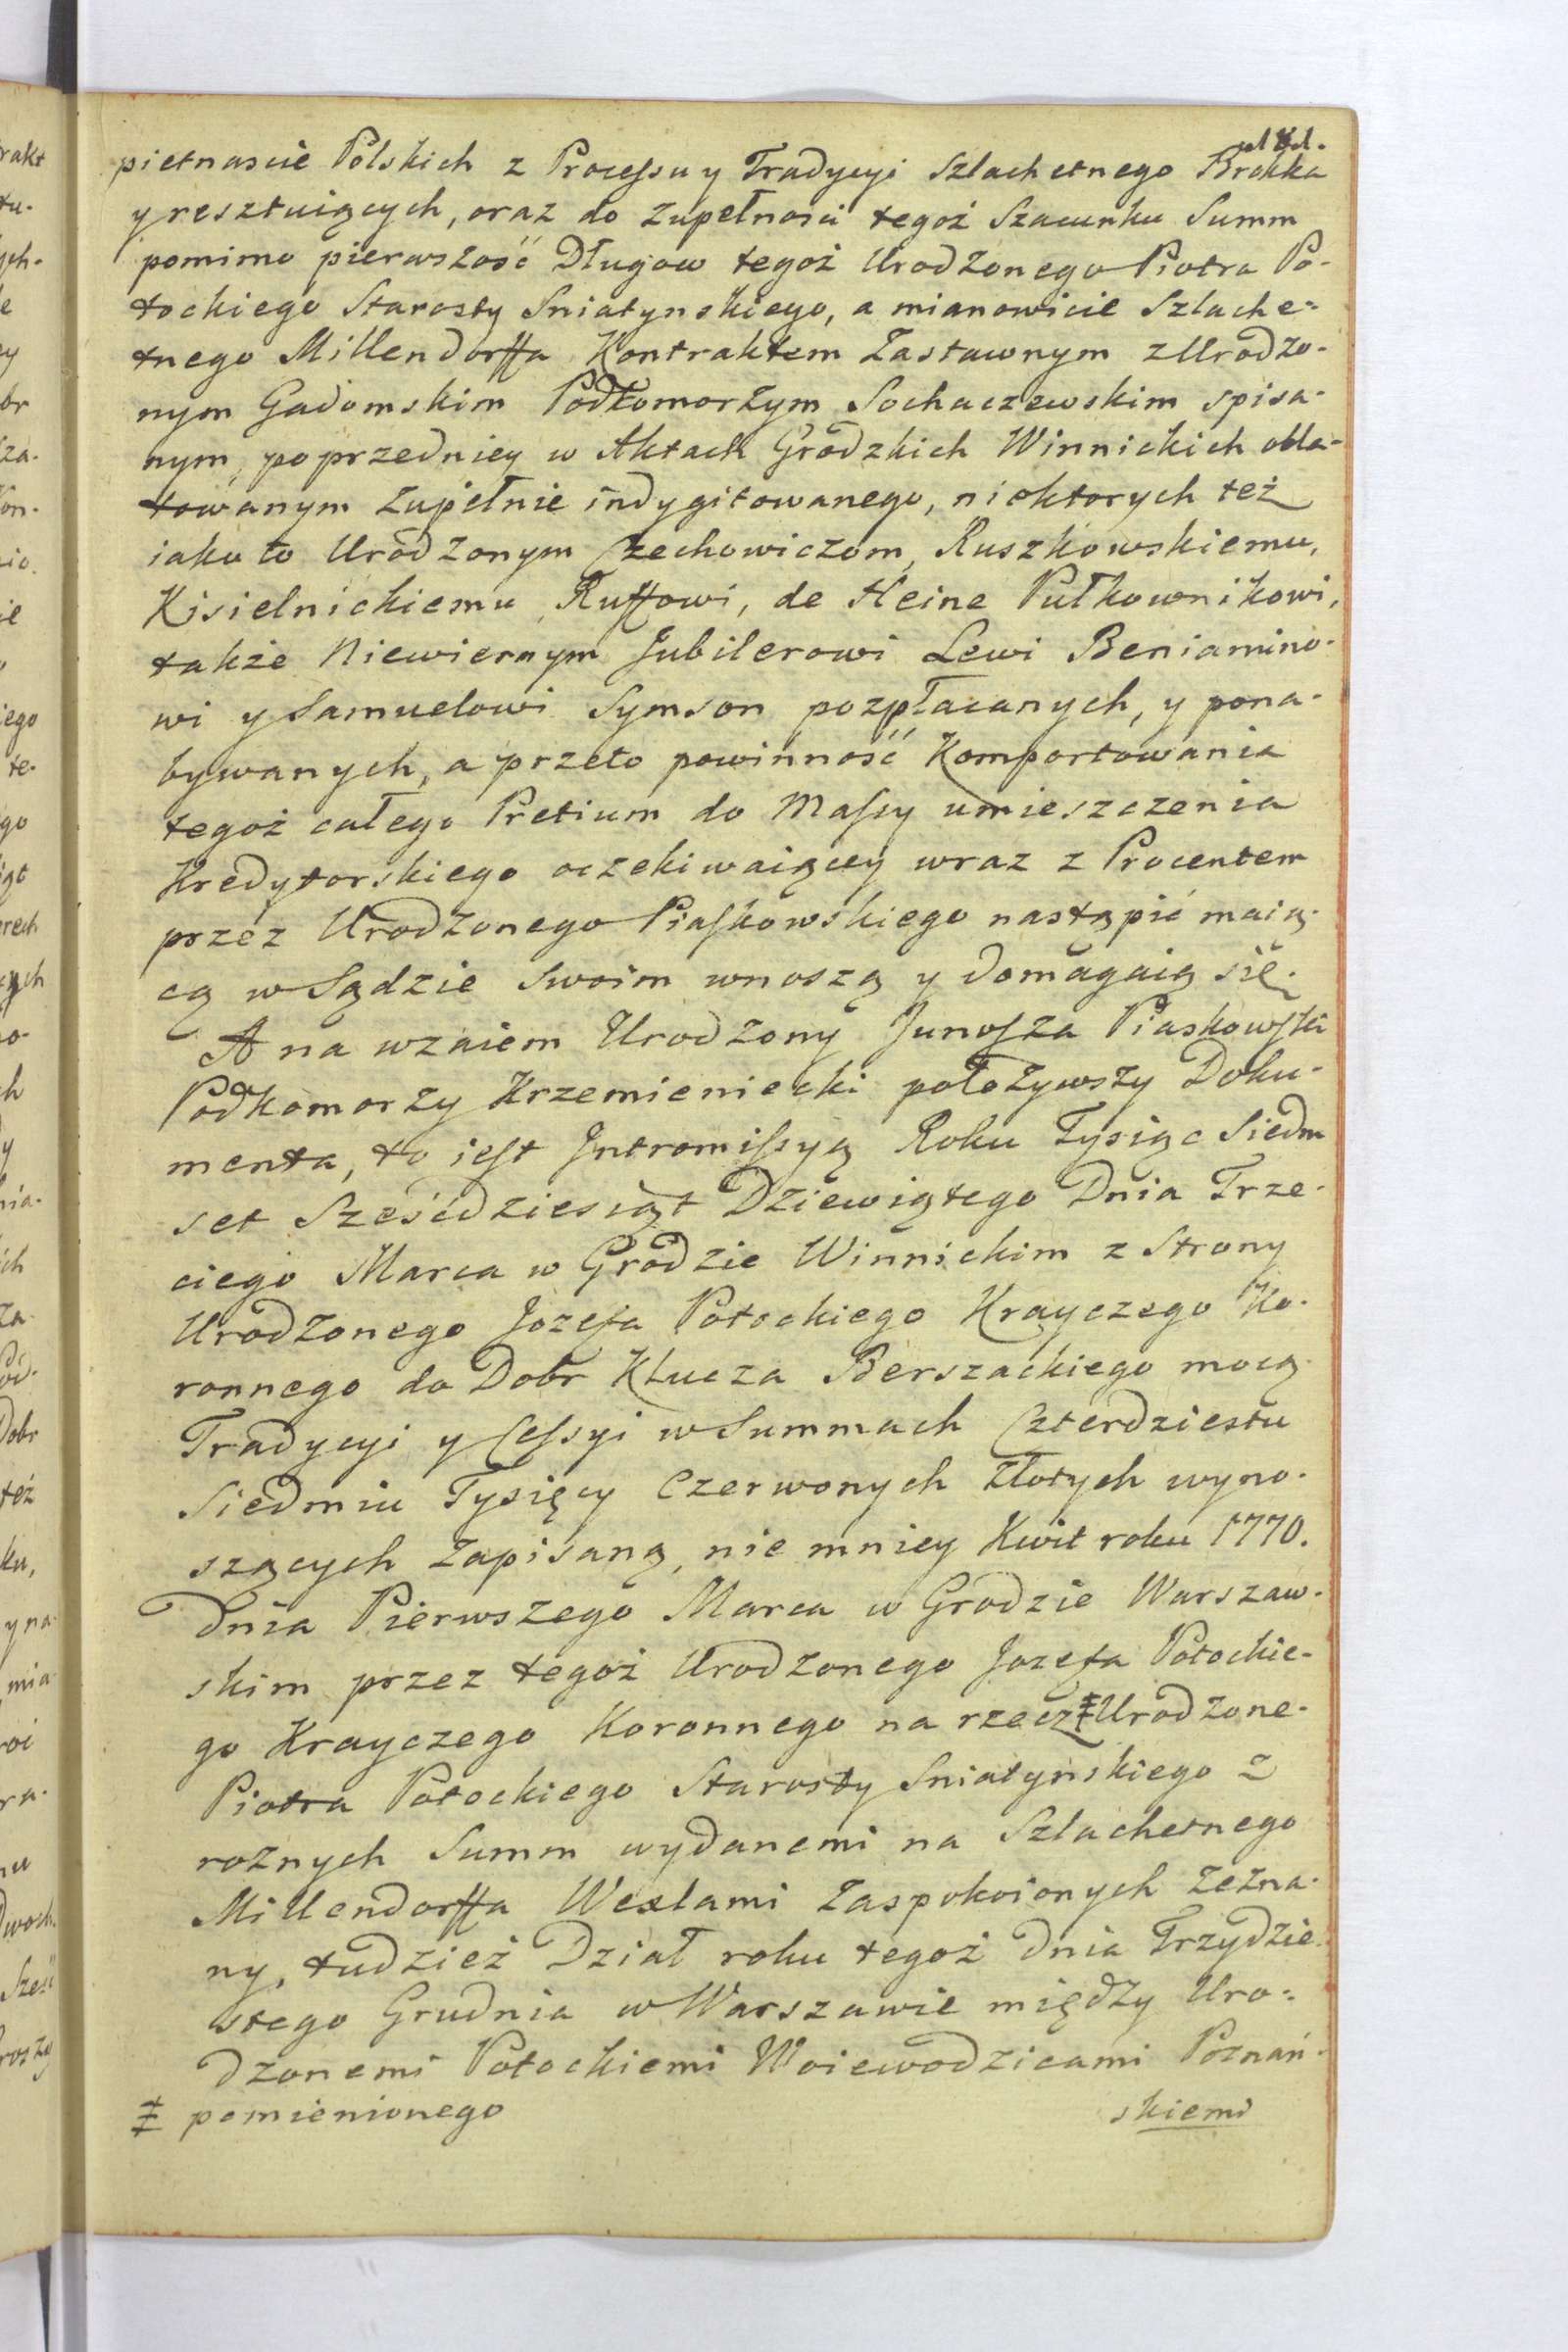 pietnascie Polskich z Processu y Tradycyi Szlachetnego Brokka
y resztuiących, oraz do zupełnosci tegoż Szacunku Summ
pomimo pierwszość Długow tegoż Urodzonego Piotra Po-
tockiego Starosty Sniatynskiego, a mianowicie Szlache-
tnego Millendorffa Kontraktem Zastawnym z Urodzo-
nym Gadomskim Podkomorzym Sochaczewskim spisa-
nym, poprzedniey w Aktach Grodzkich Winnickich obla-
towanym zupełnie indygitowanego, niektorych też
iako to Urodzonym Czechowiczom, Ruszkowskiemu,
Kisielnickiemu, Ruffowi, de Heine Pułkownikowi,
także Niewiernym Jubilerowi Lewi Beniamino-
wi y Samuelowi Symson pozpłacanych, y pona-
bywanych, a przeto powinność Komportowania
tegoż całego Pretium do Massy umieszczenia
Kredytorskiego oczekiwaiącey wraz z Procentem
przez Urodzonego Piaskowskiego nastąpić maią-
cą w Sądzie Swoim wnoszą y domagaią się.
A na wzaiem Urodzony Junosza Piaskowski
Podkomorzy Krzemieniecki położywszy Doku-
menta, to jest Intromissyą Roku Tysiąc Siedm
set Sześćdziesiąt Dziewiątego Dnia Trze-
ciego Marca w Grodzie Winnickim z Strony
Urodzonego Jozefa Potockiego Krayczego Ko-
ronnego do Dobr Klucza Berszackiego mocą
Tradycyi y Cessyi w Summach Czterdziestu
Siedmiu Tysięcy Czerwonych Złotych wyno-
szących Zapisaną, nie mniey Kwit roku 1770.
Dnia Pierwszego Marca w Grodzie Warszaw-
skim przez tegoż Urodzonego Jozefa Potockie-
go Krayczego Koronnego na rzecz ‡ Urodzone-
Piotra Potockiego Starosty Sniatyńskiego z
roznych Summ wydanemi na Szlachetnego
Millendorffa Wexlami Zaspokoionych Zezna-
ny, tudzież Dział roku tegoż dnia Trzydzie-
stego Grudnia w Warszawie między Uro-
dzonemi Potockiemi Woiewodzicami Poznań-
‡ pomienionego skiemi